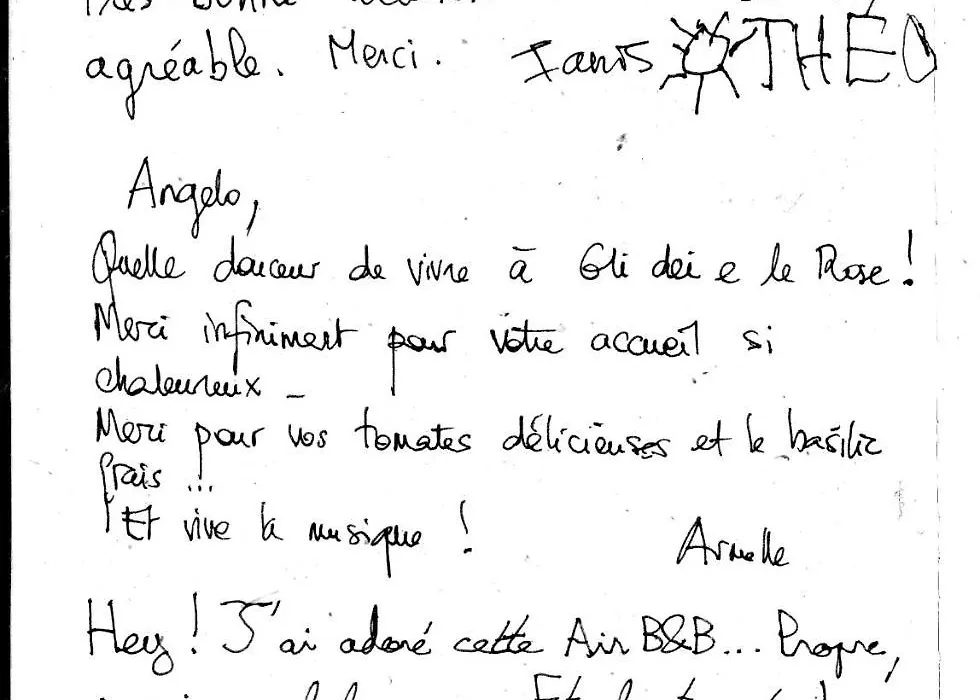 agréable. Merci. Ianis THÉO
Angelo,
Quelle douceur de vivre à Gli dei e le Rose !
Merci infiniment pour votre accueil si
chaleureux _
Merci pour vos tomates délicieuses et le basilic
frais ...
Et vive la musique !
Armelle
Hey ! J'ai adoré cette Air B&B... Propre,